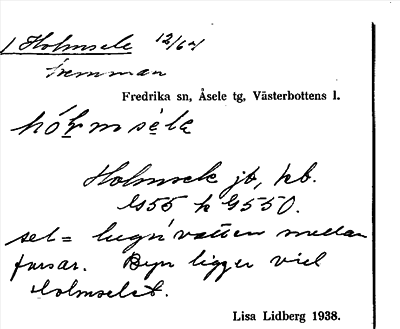 / Holmsele 12/64
hemman
Fredrika sn, Åsele tg, Västerbottens l.
hólmséla
Holmsele jb, kb.
G550.
sel = lugnvatten mellan
forsar. Byn ligger vid
Holmselet.
Lisa Lidberg 1938.